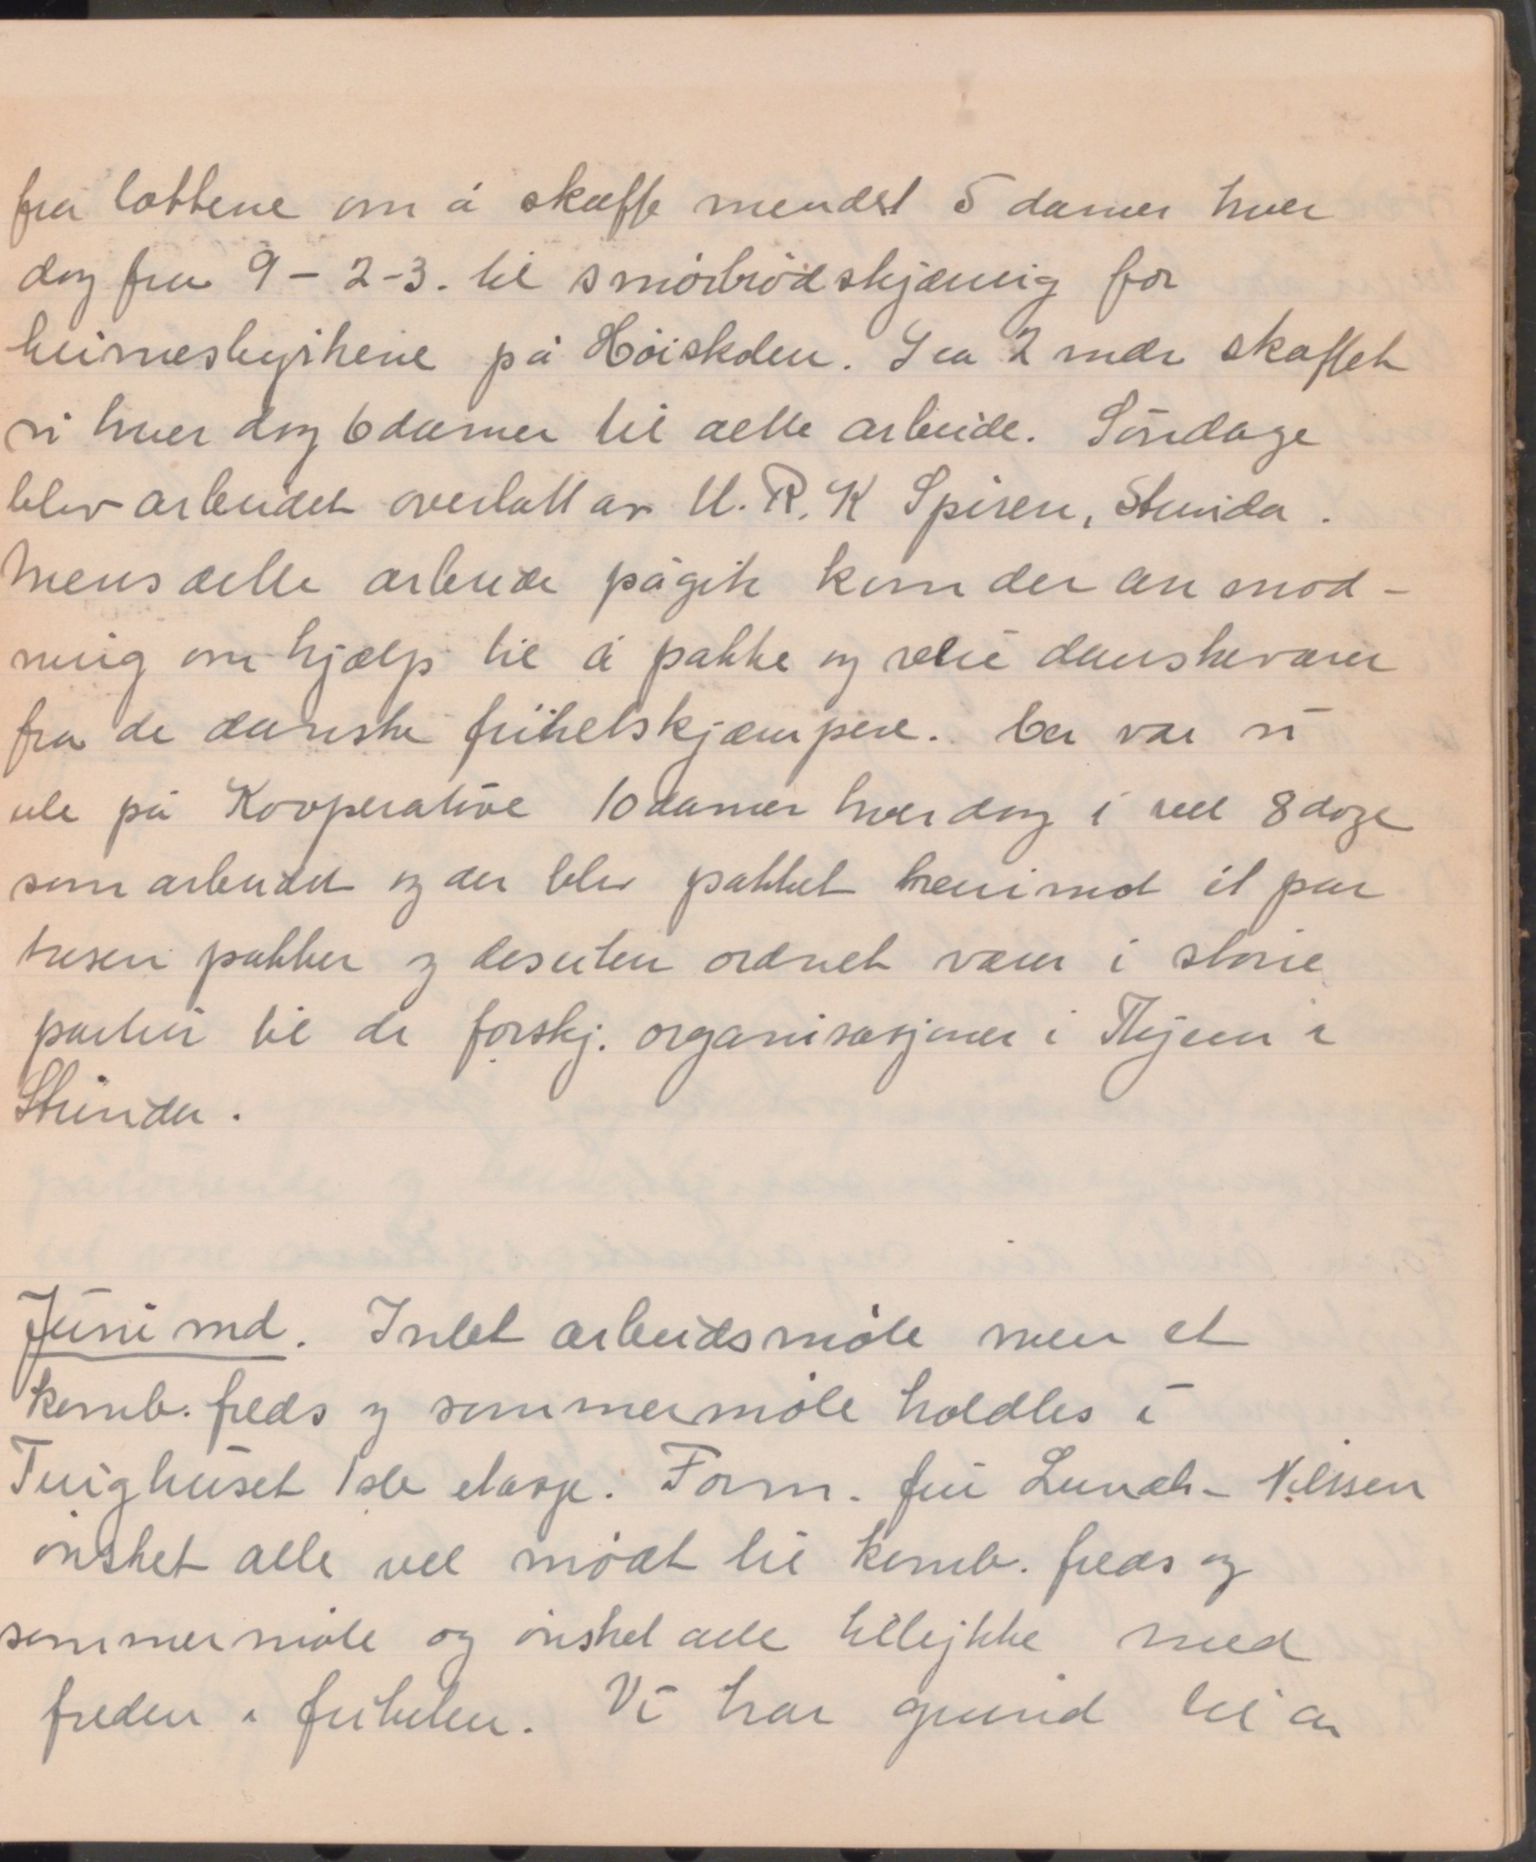 fra lottene om å skaffe mendst 5 damer hver
dag fra 9 - 2-3. til smörbrödskjæring for
heimestyrkene på Höiskolen. I ca 2 mdr skaffet
vi hver dag 6 damer til dette arbeide. Söndage
blev arbeidet overlatt av U.R.K Spiren, Strinda.
Mens dette arbeide pågik kom der anmod-
ning om hjælp til å pakke og danskevarer
fra de danske frihetskjæmpere. Her var vi
ute på Kooperative 10 damer hver dag i vel 8 dage
som arbeidet og der blev pakket henimot et par
tusen pakker og desuten ordnet varer i större
partier til de forskj. organisasjoner i Thjem i
Strinda.
Juni md. Intet arbeidsmöte men et
komb. freds og sommermöte holdtes i
Tinghuset 1ste etasje. Form. fru Lundh-Nilssen
önsket alle vel mödt til komb. freds og
sommermöte og önsket alle tillykke med
freden i friheten. Vi har grund til at